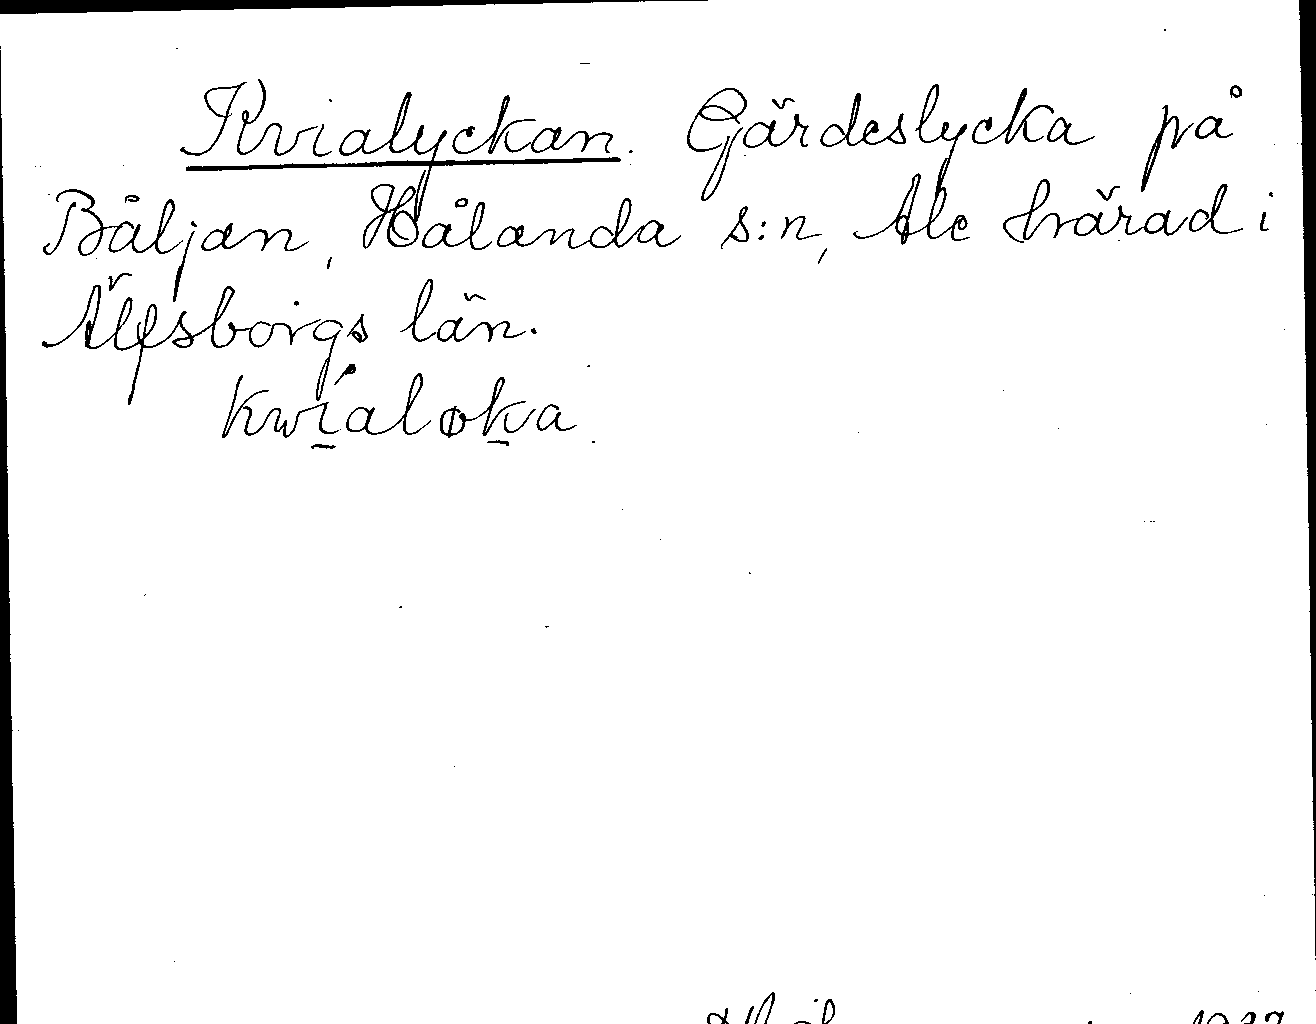 Kvialyckan. Gärdeslycka på
Båljan, Hålanda s:n, Ale härad i
Älfsborgs län.
kwi̱aløḵa